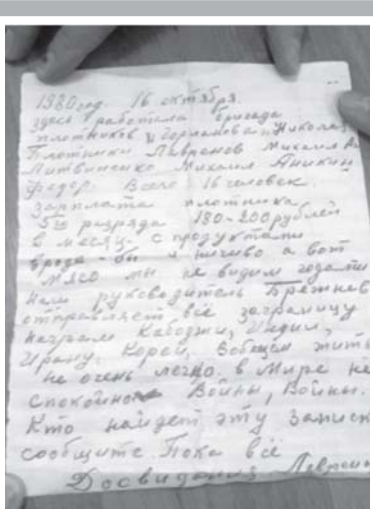 1980 год. 16 октября.
Здесь работала бригада
плотников Горланова Николая
Плотники Лавренов Михаил
Литвиненко Михаил Аникин
Федор. Всего 16 человек.
Зарплата плотника
5го разряда 180-200 рублей
в месяц. С продуктами
вроде-бы и ничиво а вот
мясо мы не видим годами
Нам руководитель Брежнев
отправляет всё заграницу
неграм Кабоджи, Индии,
Ирану, Кореи, Вобщем жить
не очень легко. в Мире не
спокойно Войны, Войны.
Кто найдет эту записк
сообщите. Пока всё
Досвидания Лаврен